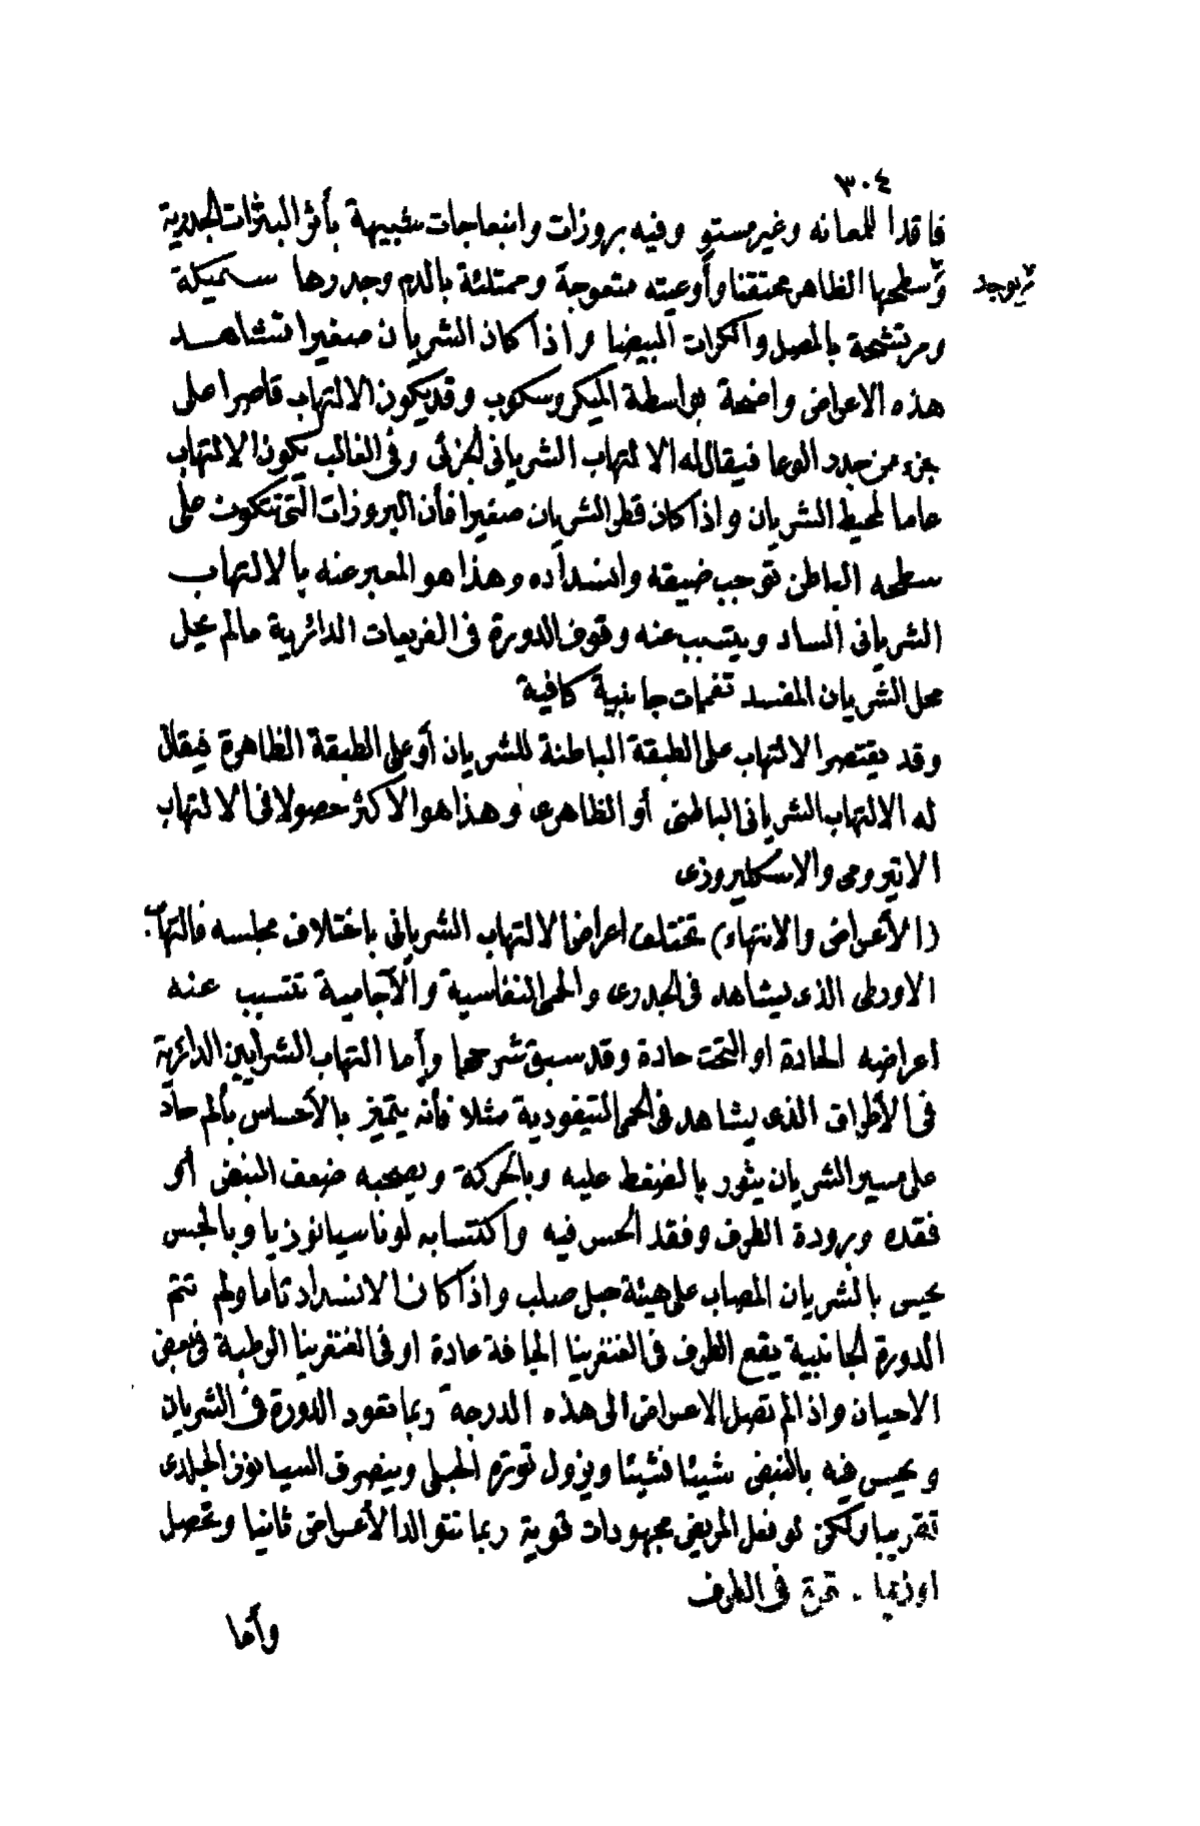 ٣٠٤
فاقدا للمعانه وغير مستو وفيه بروزات وانبعاجات شبيهة بأثر البثرات الجدرية
وسطحها الظاهر محتقنا وأوعيته متعوجة وممتلئة بالدم وجدرها سميكة
يوجد
ومرتشحة بالمصل والكرات البيضا واذا كان الشريان صغيرا تشاهد
هذه الاعراض واضحة بواسطة الميكروسكوب وقد يكون الالتهاب قاصرا على
جزء من جدر الوعا فيقال له الالتهاب الشريانى الجزئى وفى الغالب يكون الالتهاب
عاما لمحيط الشريان واذا كان قطر الشريان صغيرا فأن البروزات التى تتكون على
سطحه الباطن توجب ضيقه وانسداده وهذا هو المعبر عنه بالالتهاب
الشريانى الساد ويتسبب عنه وقوف الدورة فى الفريعات الدائرية مالم يحل
محل الشريان المنسد تفممات جانبية كافية
وقد يقتصر الالتهاب على الطبقة الباطنة للشريان أو على الطبقة الظاهرة فيقال
له الالتهاب الشريانى الباطنى أو الظاهرى وهذا هو الأكثر حصولا فى الالتهاب
الاتيرومى والاسكليروزى
(الأعراض والانتهاء) تختلف اعراض الالتهاب الشريانى باختلاف مجلسه فالتهاب
الاورطى الذى يشاهد فى الجدرى والحمى النفاسية والآجامية تتسبب عنه
اعراضه الحادة او التحت حادة وقد سبق شرحها وأما التهاب الشرايين الدائرية
فى الأطراف الذى يشاهد فى الحمى التيفودية مثلا فأنه يتميز بالأحساس بألم حاد
على مسير الشريان يثور بالضغط عليه وبالحركة ويصحبه ضعف النبض أو
فقده وبرودة الطرف وفقد الحس فيه واكتسابه لونا سيانوزيا وبالجس
يحس بالشريان المصاب على هيئة حبل صلب واذا كان الانسداد تاما ولم تتم
الدورة الجانبية يقع الطرف فى الغنغرينا الجافة عادة او فى الغنغرينا الرطبة فى بعض
الاحيان واذا لم تصل الاعراض الى هذه الدرجة ربما تعود الدورة فى الشريان
ويحس فيه بالنبض شيئا فشيئا ويزول توتره الحبلى وينصرف السيانوز الجلدى
تقريبا ولكن لو فعل المريض مجهودات قوية ربما تتوالد الأعراض ثانيا وتحصل
اوزيما فى الطرف
وأما